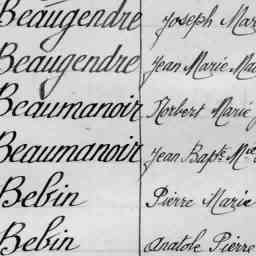 Beaugendre Joseph Mar
Beaugendre Jean Marie Ma
Beaumanoir Norbert Marie
Beaumanoir Jean Bapte Mie
Bebin Pierre Marie
Bebin Anatole Pierre